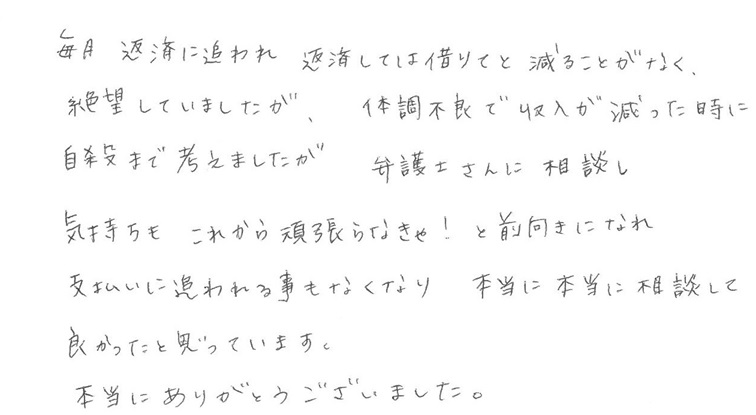 毎月 返済に追われ 返済しては借りてと 減ることがなく、
絶望していましたが、 体調不良で収入が減った時に
自殺まで考えましたが 弁護士さんに相談し
気持ちも これから頑張らなきゃ！と前向きになれ
支払いに追われる事もなくなり 本当に本当に相談して
良かったと思っています。
本当にありがとうございました。